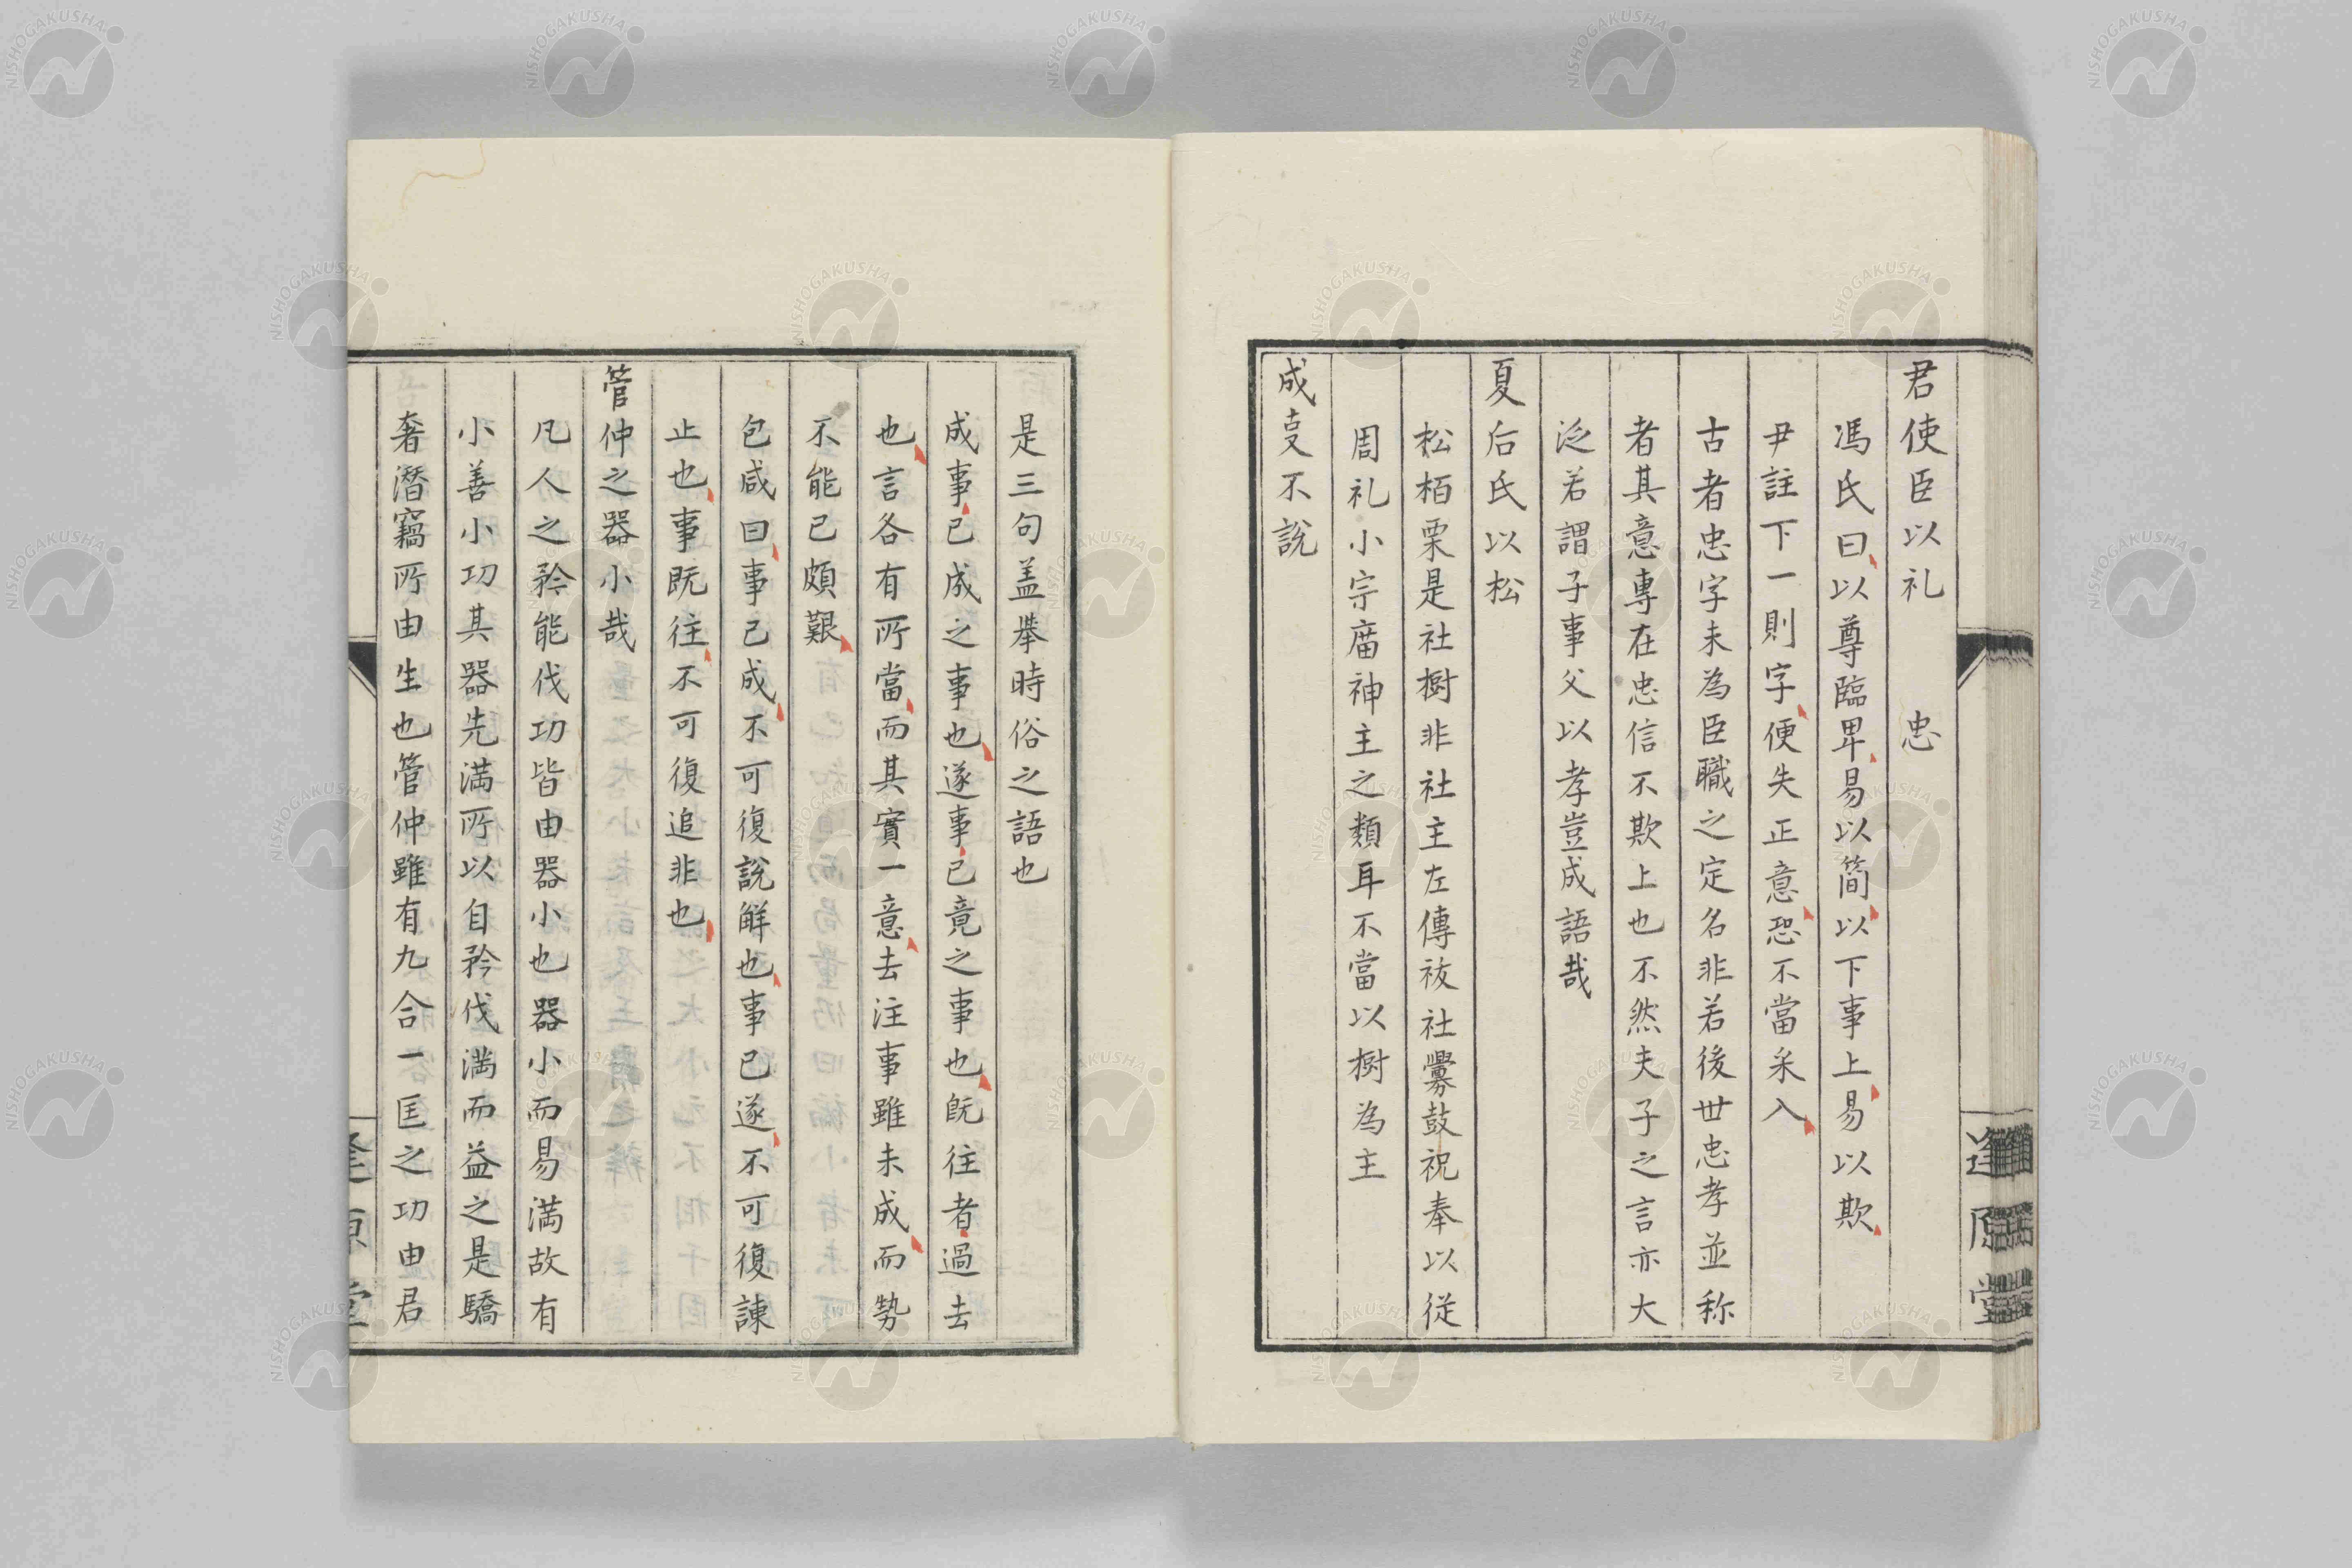 君使臣以礼　　忠
馮氏曰以尊臨卑易以簡以下事上易以欺
尹註下一則字便失正意恐不當采入
古者忠字未為臣職之定名非若後世忠孝並称
者其意專在忠信不欺上也不然夫子之言亦大
泛若謂子事父以孝豈成語哉
夏后氏以松
松栢栗是社樹非社主左傳祓社釁鼓祝奉以従
周礼小宗庿神主之類耳不當以樹為主
成叓不説
逢原堂
是三句盖举時俗之語也
成事已成之事也遂事已竟之事也既往者過去
也言各有所當而其實一意去注事雖未成而勢
不能已頗艱
包咸曰事已成不可復說觧也事已遂不可復諫
止也事既往不可復追非也
管仲之器小哉
凡人之矜能伐功皆由器小也器小而易満故有
小善小功其器先満所以自矜伐満而益之是驕
奢潛竊所由生也管仲雖有九合一匡之功由君
逢原堂
NISHOGAKUSHA